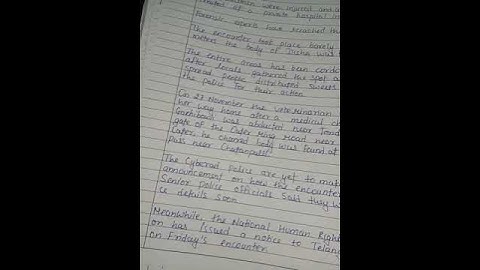 were injured and a
treated at a private hospital in
Forensic experts have reached th
The encounter took place barely
meters the body of Disha was
The entire areas has been cordo
after locals gathered the spot a
spread people distributed sweets
the police for their action
On 27 November the veterinarian
her way home after a medical ch
Gachibowli was abducted near Tond
gate of the Outer Ring Road near
Later, he charred body was found at
Pass near Chatanpalli
The Cyberad Police are yet to mak
announcement on how the encounte
Senior police officials said they w
ce details soon
Meanwhile, the National Human Righ
on has issued a notice to Telang
on Friday's encounter.